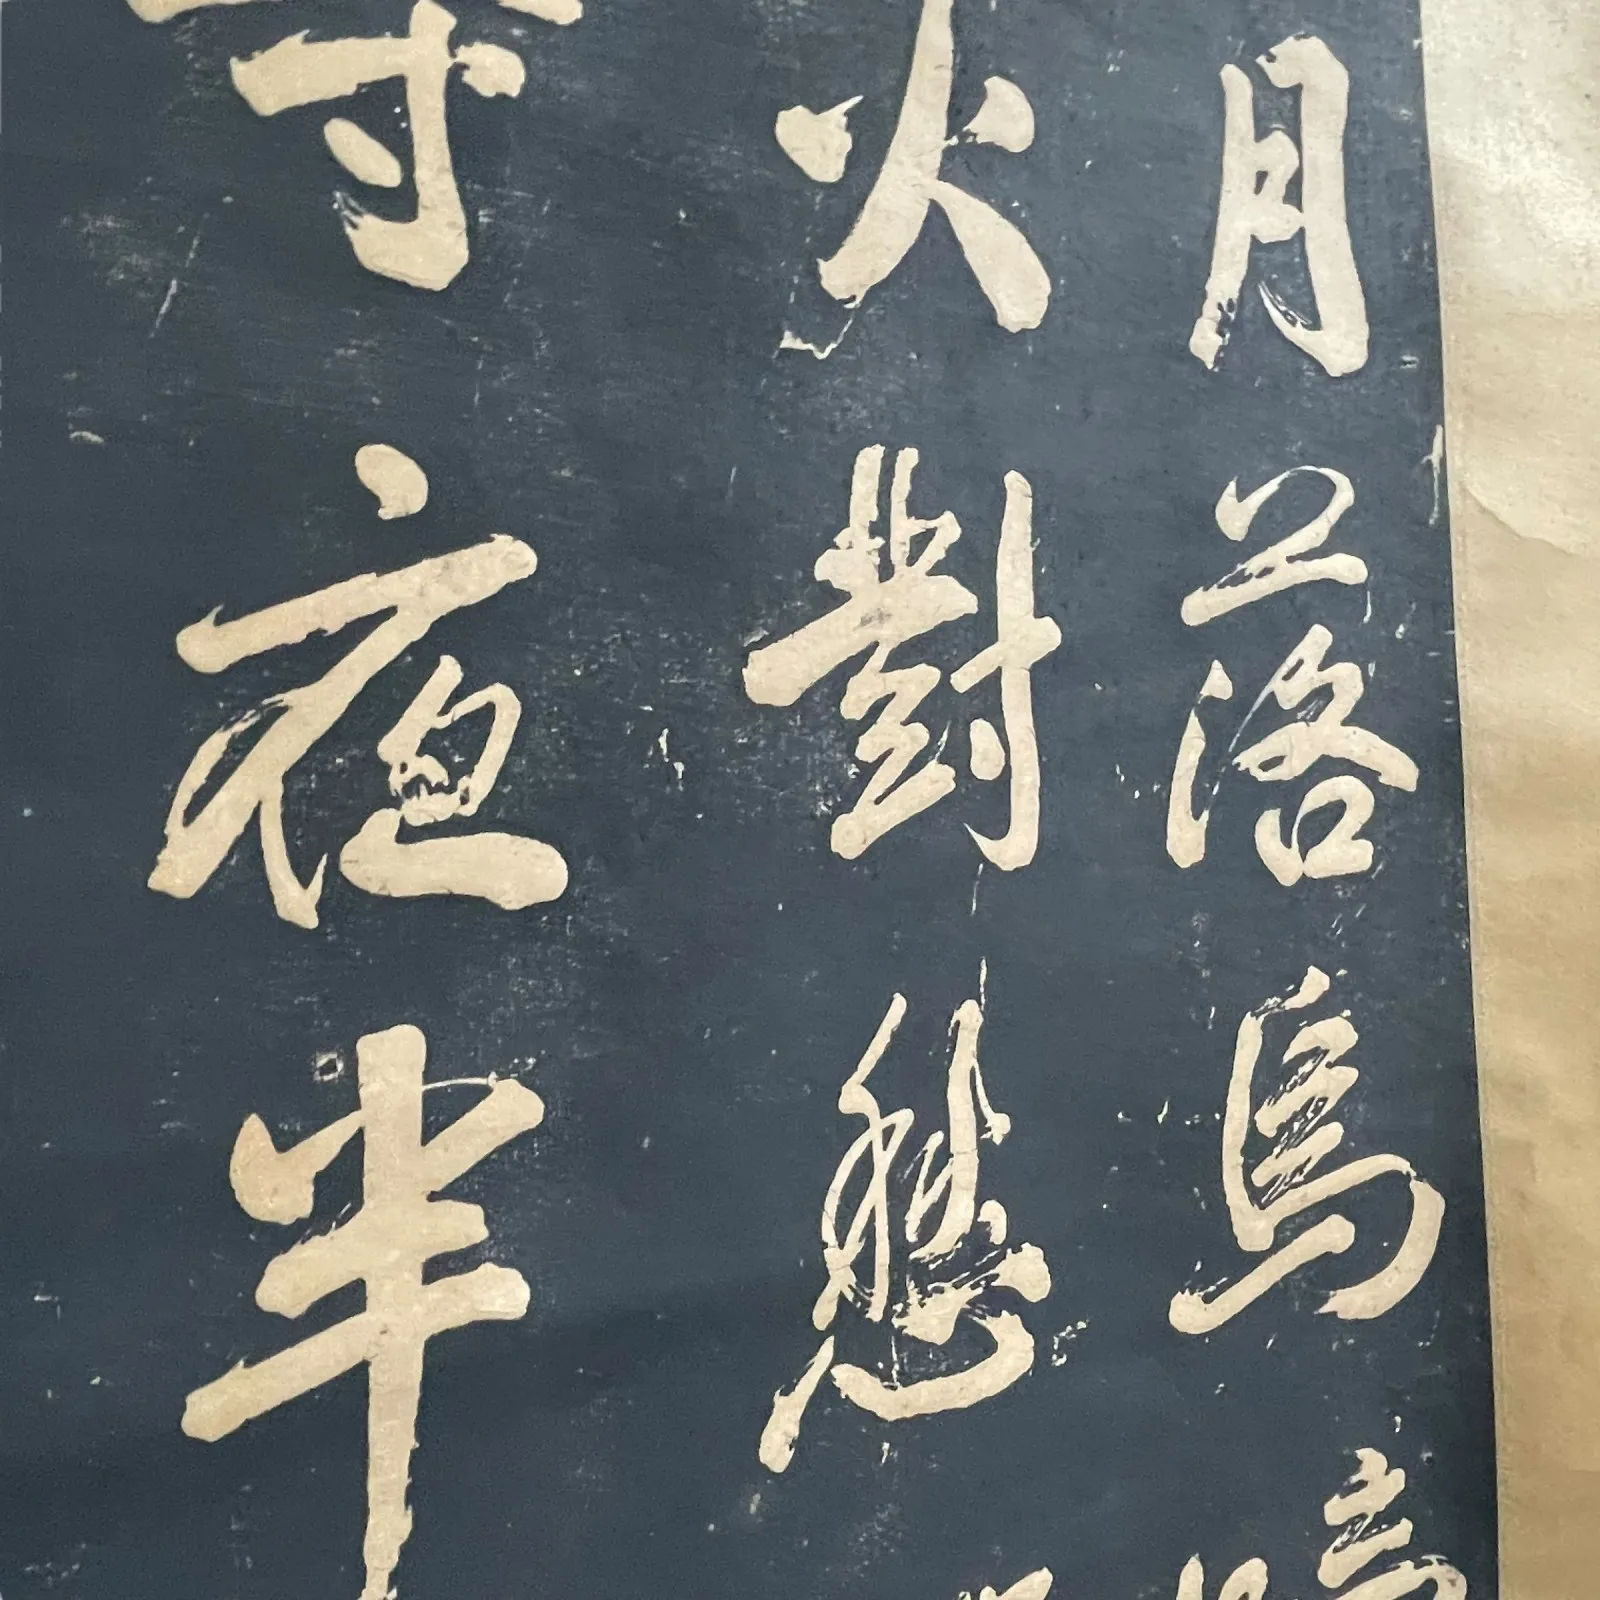 月落烏啼
火對愁
寺夜半